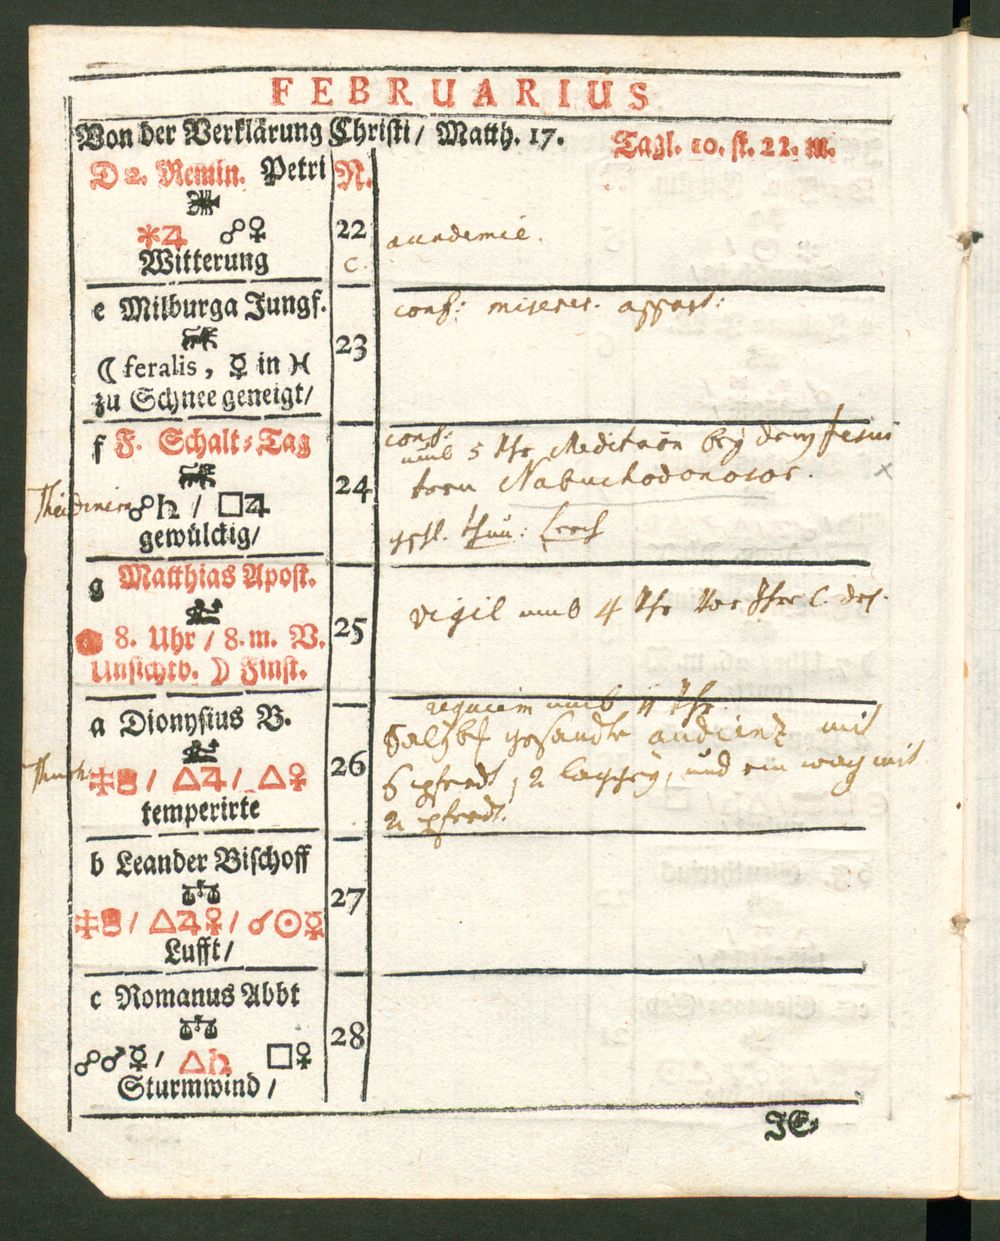 FEBRUARIUS
Von der Verklärung Christi / Matth. 17. Tagl. 10. st. 22. m.
D 2. Remin. Petri N.
⚹♃ ☍♀ 22
Witterung C.
e Milburga Jungf.
conf: miserer.
23
☾ feralis, ☿ in ♓
zu Schnee geneigt /
f F. Schalt-Tag
conf:
umb 5 Uhr Meditation bey dem Jesui
tern Nabuchodonosor.
24
☍♄ / □♃
gewülckig /
g Matthias Apost.
25 Vigil umb 4 Uhr
8. Uhr / 8. m. V.
Unsichtb. ☽ Finst.
requiem umb 11 Uhr
a Dionysius B.
gesandte audienz mit
26 6 pferdt, 2 und ein mit
△♃ / △♀
temperirte 2 pferdt.
b Leander Bischoff
27
△♃♀ / ☌☉☿
Lufft /
c Romanus Abbt
28
☍♂☿ / △♄ □♀
Sturmwind /
JE-